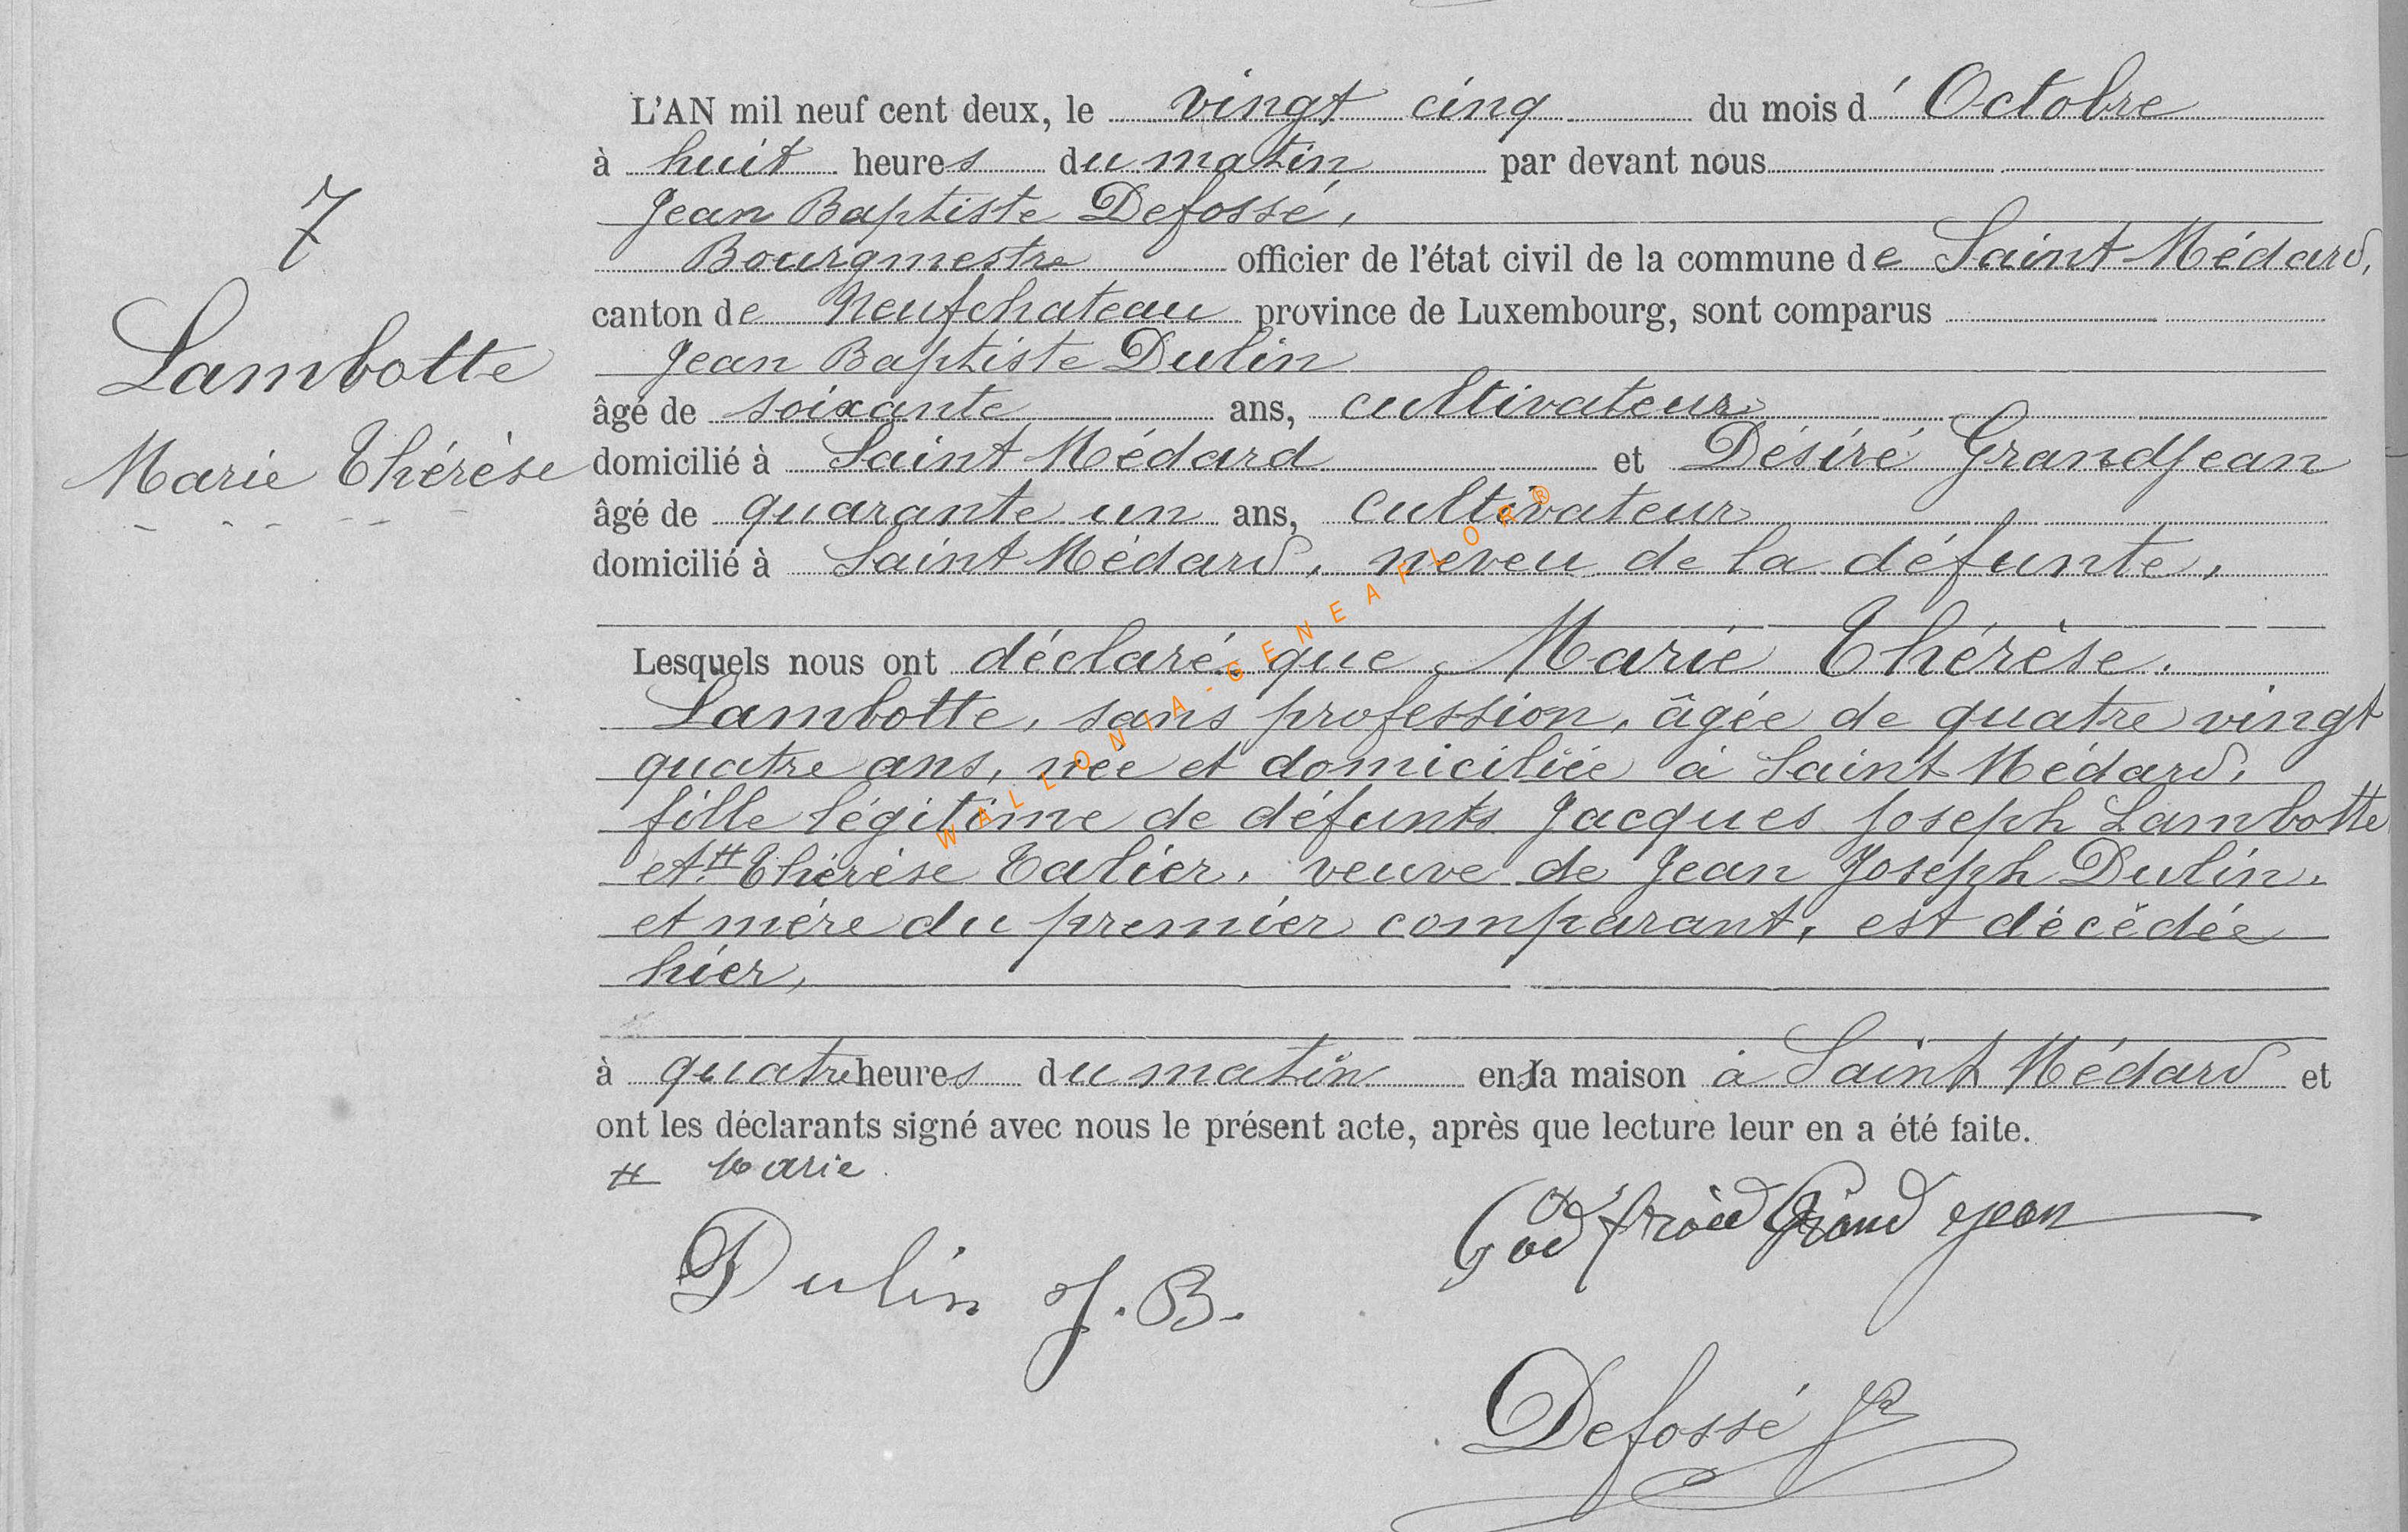 L'AN mil neuf cent deux, le vingt cinq du mois d'Octobre
à huit heures du matin par devant nous
Jean Baptiste Defossé,
Bourgmestre officier de l'état civil de la commune de Saint Médard,
canton de Neufchateau province de Luxembourg, sont comparus
Jean Baptiste Dulin
âgé de soixante ans, cultivateur
domicilié à Saint Médard et Désiré GrandJean
âgé de quarante un ans, cultivateur
domicilié à Saint Médard, neveu de la défunte,
Lesquels nous ont déclaré que Marie Thérèse
Lambotte, sans profession, âgée de quatre vingt
quatre ans, née et domiciliée à Saint Médard,
fille légitime de défunts Jacques Joseph Lambotte
et # Thérèse Talier, veuve de Jean Joseph Dulin,
et mère du premier comparant, est décédée
hier,
à quatre heures du matin en sa maison à Saint Médard et
ont les déclarants signé avec nous le présent acte, après que lecture leur en a été faite.
# Marie
7
Lambotte
Marie Thérèse
Grand jean
Dulin J. B.
Defossé
WALLONIA-GENEAFLOR®